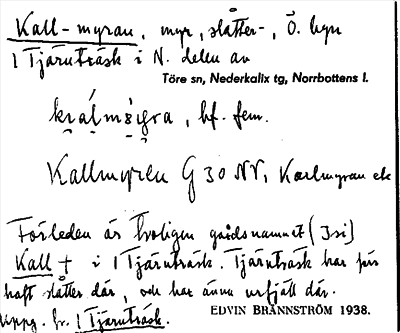 Kall-myran, myr, slåtter-, Ö. byn
1 Tjärnträsk i N. delen av
Töre sn, Nederkalix tg, Norrbottens l.
bf. fem.
Kallmyren G 30 NV, Karlmyran ek
Förleden är troligen gårdsnamnet (Jsi)
Kall † i 1 Tjärnträsk. Tjärnträsk har förr
haft slåtter där, och har ännu utfjäll där.
Uppg. fr. 1 Tjärnträsk.
EDVIN BRÄNNSTRÖM 1938.